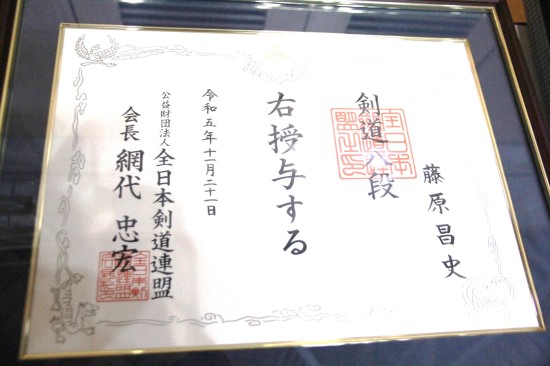 藤原昌史
剣道八段
右授与する
令和五年十一月二十一日
公益財団法人全日本剣道連盟
会長 網代忠宏